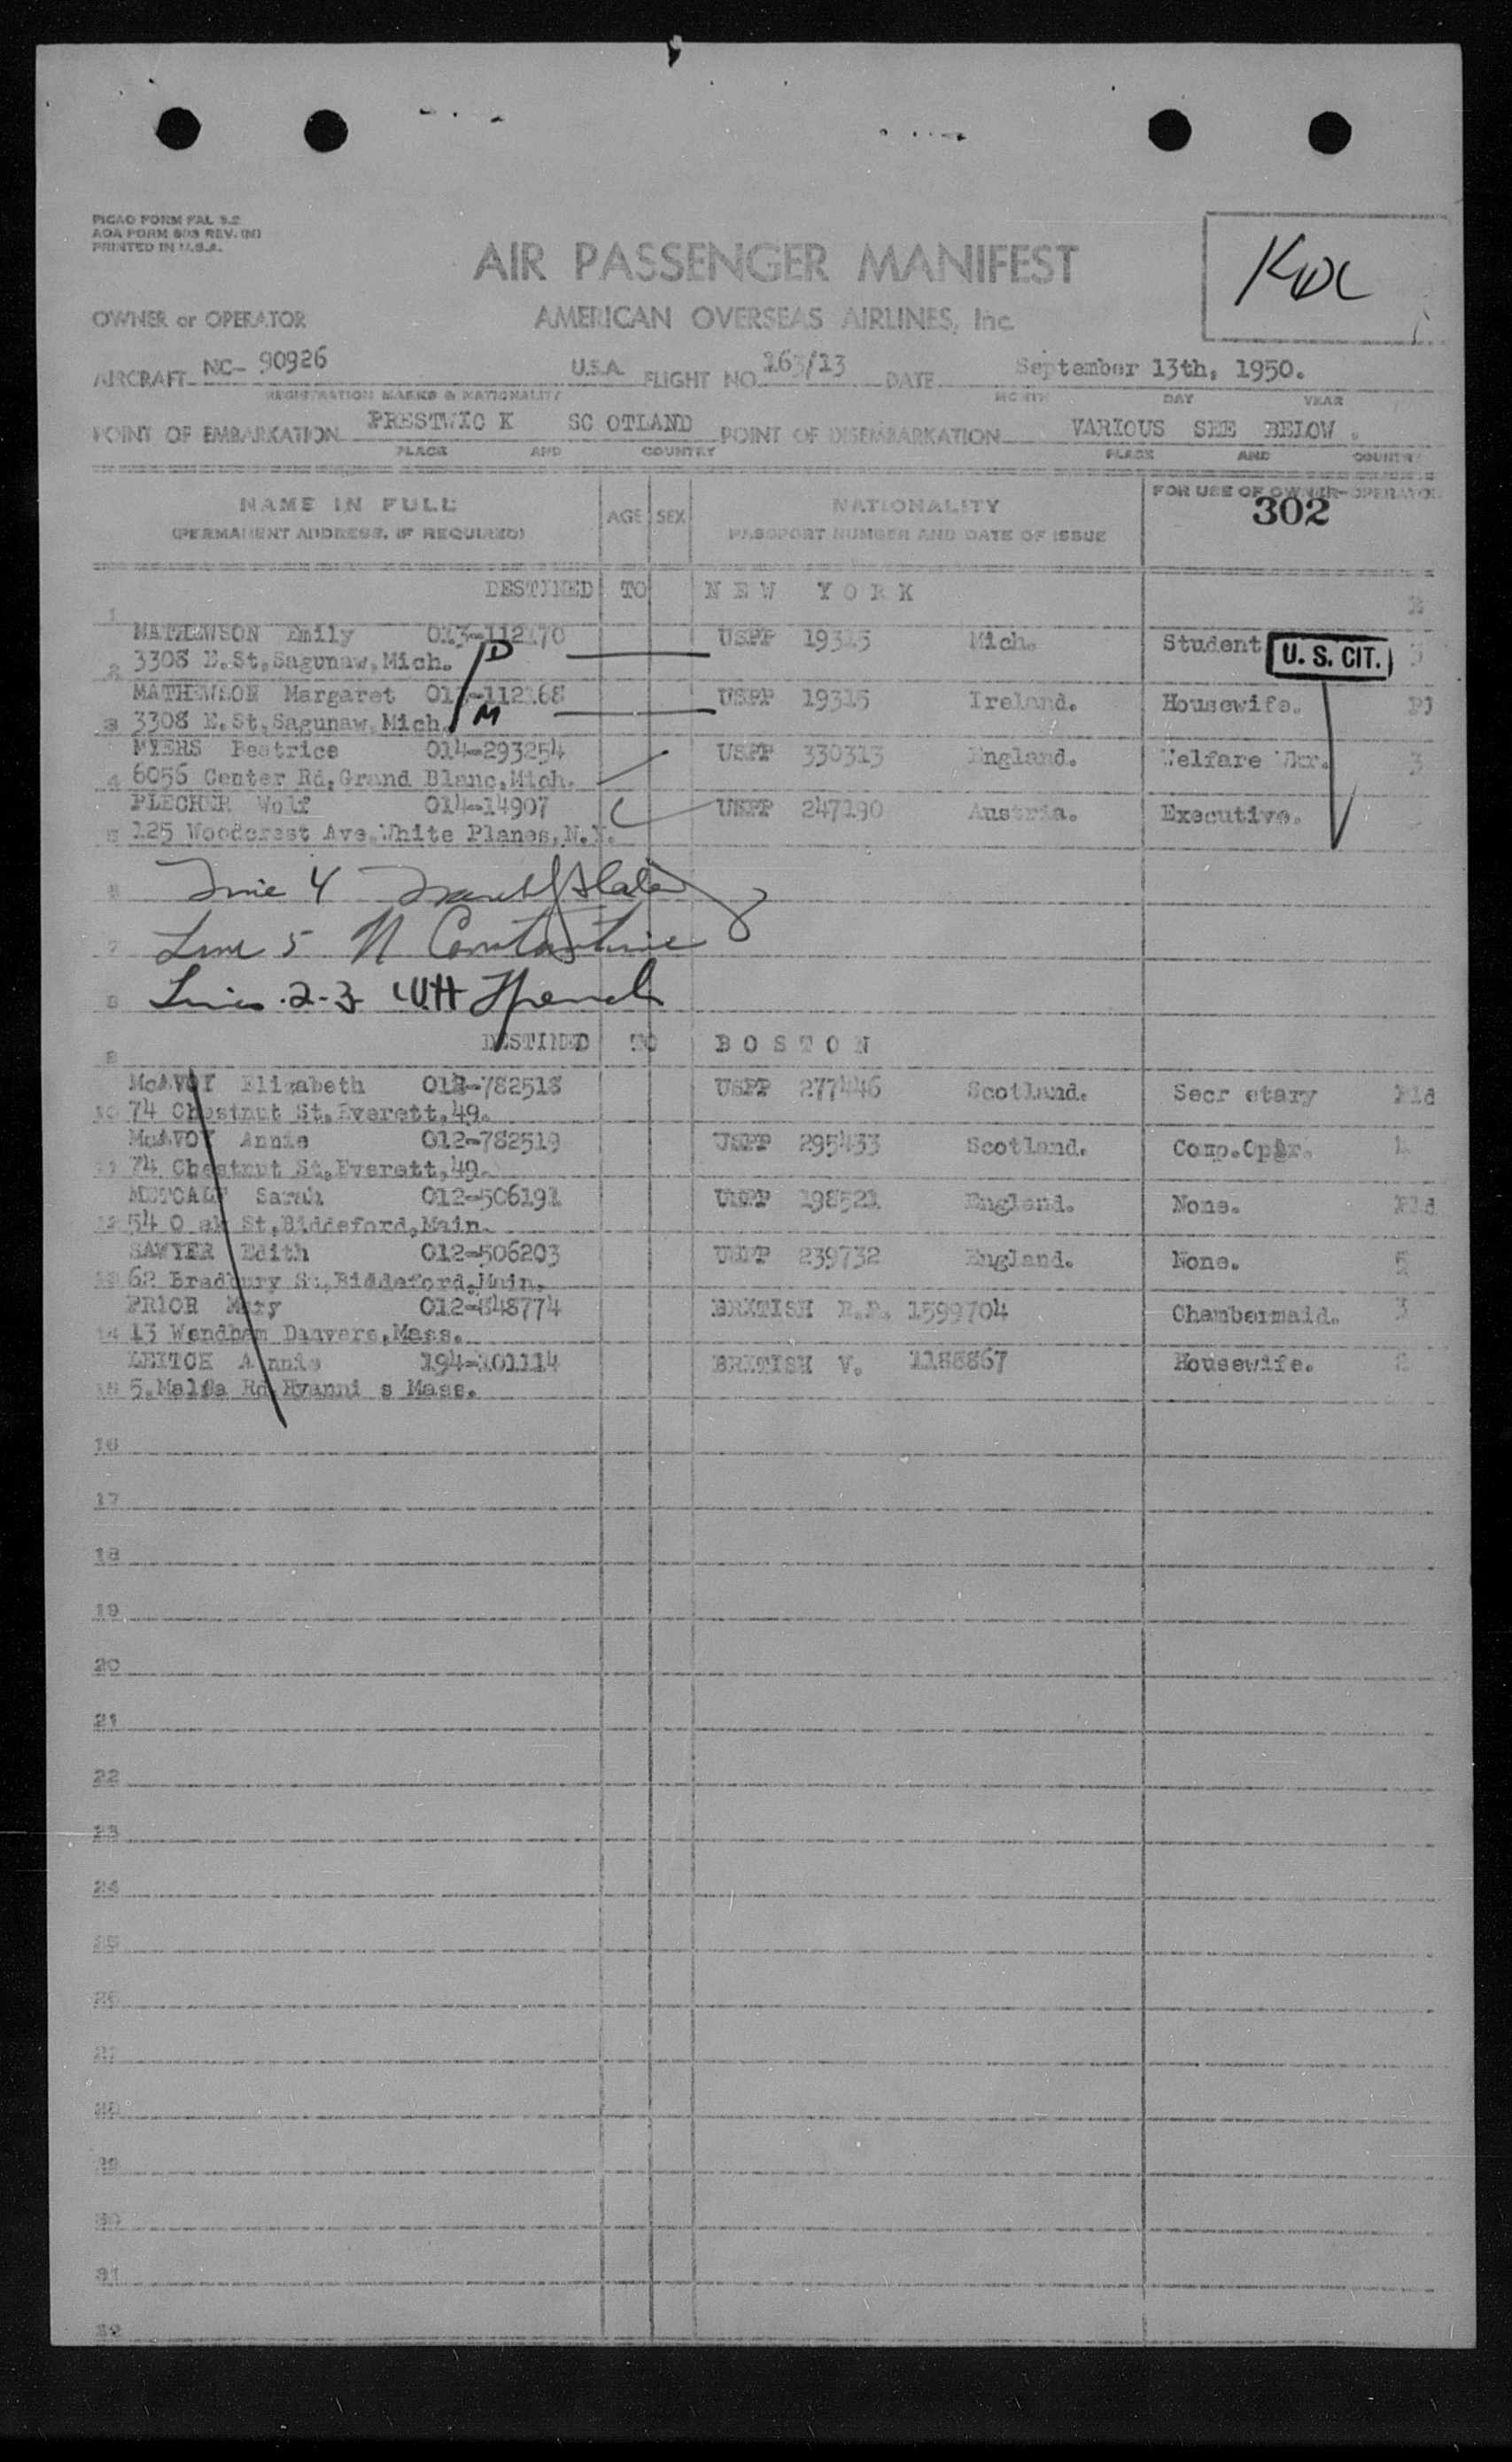 PICAO FORM FAL 3.2
AOA FORM 603 REV.
PRINTED IN U.S.A.
AIR PASSENGER MANIFEST
OWNER or OPERATOR AMERICAN OVERSEAS AIRLINES, Inc.
AIRCRAFT NC- 90926 U.S.A. FLIGHT NO. 163/13 DATE September 13th, 1950.
REGISTRATION MARKS & NATIONALITY MONTH DAY YEAR
POINT OF EMBARKATION PRESTWIC K SC OTLAND POINT OF DISEMBARKATION VARIOUS SEE BELOW .
PLACE AND COUNTRY PLACE AND COUNTRY
NAME IN FULL AGE SEX NATIONALITY FOR USE OF OWNER-OPERATOR
302
(PERMANENT ADDRESS, IF REQUIRED) PASSPORT NUMBER AND DATE OF ISSUE
DESTINED TO N E W Y O R K
1
MATHEWSON Emily 013-112170 USPP 19315 Mich. Student U. S. CIT. 3
2 3308 E.St,Sagunaw,Mich. D
MATHEWSON Margaret 013-112168 USPP 19315 Ireland. Housewife.
3 3308 E.St,Sagunaw,Mich. M
MYERS Beatrice 014-293254 USPP 330313 England. Welfare Wkr. 3
4 6056 Center Rd,Grand Blanc,Mich.
PLECHER Wolf 014-14907 USPP 247190 Austria. Executive.
5 125 Woodcrest Ave.White Planes,N.Y.
6 Line 4
7 Line 5 N Constantine
8 Lines 2-3 WH French
DESTINED TO B O S T O N
9
McAVOY Elizabeth 012-782518 USPP 277446 Scotland. Secr etary
10 74 Chestnut St,Everett,49.
McAVOY Annie 012-782519 USPP 295433 Scotland. Comp.Opør.
11 74 Chestnut St,Everett,49.
METCALF Sarah 012-506191 USPP 198521 England. None.
12 54 O ak St,Biddeford,Main.
SAWYER Edith 012-506203 USPP 239732 England. None. 5
13 62 Bradbury St,Biddeford,Main.
PRIOR Mary 012-848774 BRITISH R.P. 1599704 Chambermaid. 3
14 13 Wendham Danvers,Mass.
LEITCH Annie 194-101114 BRITISH V. 1188867 Housewife. 2
15 5.Malfa Rd,Hyanni s Mass.
16
17
18
19
20
21
22
23
24
25
26
27
28
29
30
31
32